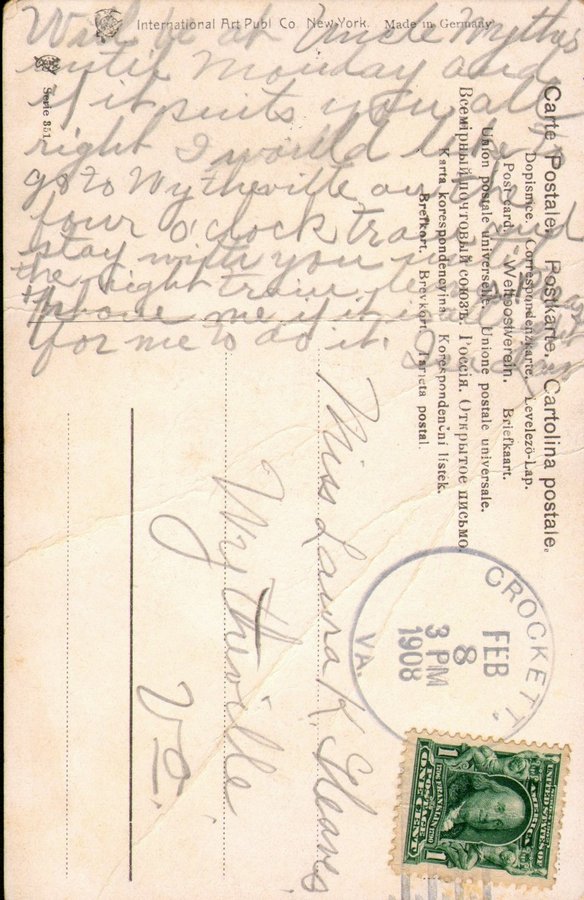 International Art Publ Co. New-York. Made in Germany.
Serie 351
Will be at Uncle Wythes
until Monday and
if it suits you all
right I would like to
go to Wytheville on
four o'clock train and
stay with you until
the night train
phone me if it
for me to do it.
Carte Postale. Postkarte. Cartolina postale.
Dopisnice. Correspondenzkarte. Levelező-Lap.
Post card. Weltpostverein. Briefkaart.
Union postale universelle. Unione postale universale.
Всемірный почтовый союзъ. Россія. Открытое письмо.
Karta korespondencyjna. Korespondenční lístek.
Brefkort. Brevkort. Tarjeta postal.
Miss Laura K. Gleaves
Wytheville
Va.
CROCKETT.
FEB
8
3 PM
1908
VA.
UNITED STATES OF
AMERICA
1706 FRANKLIN 1790
POSTAGE
1 ONE CENT 1